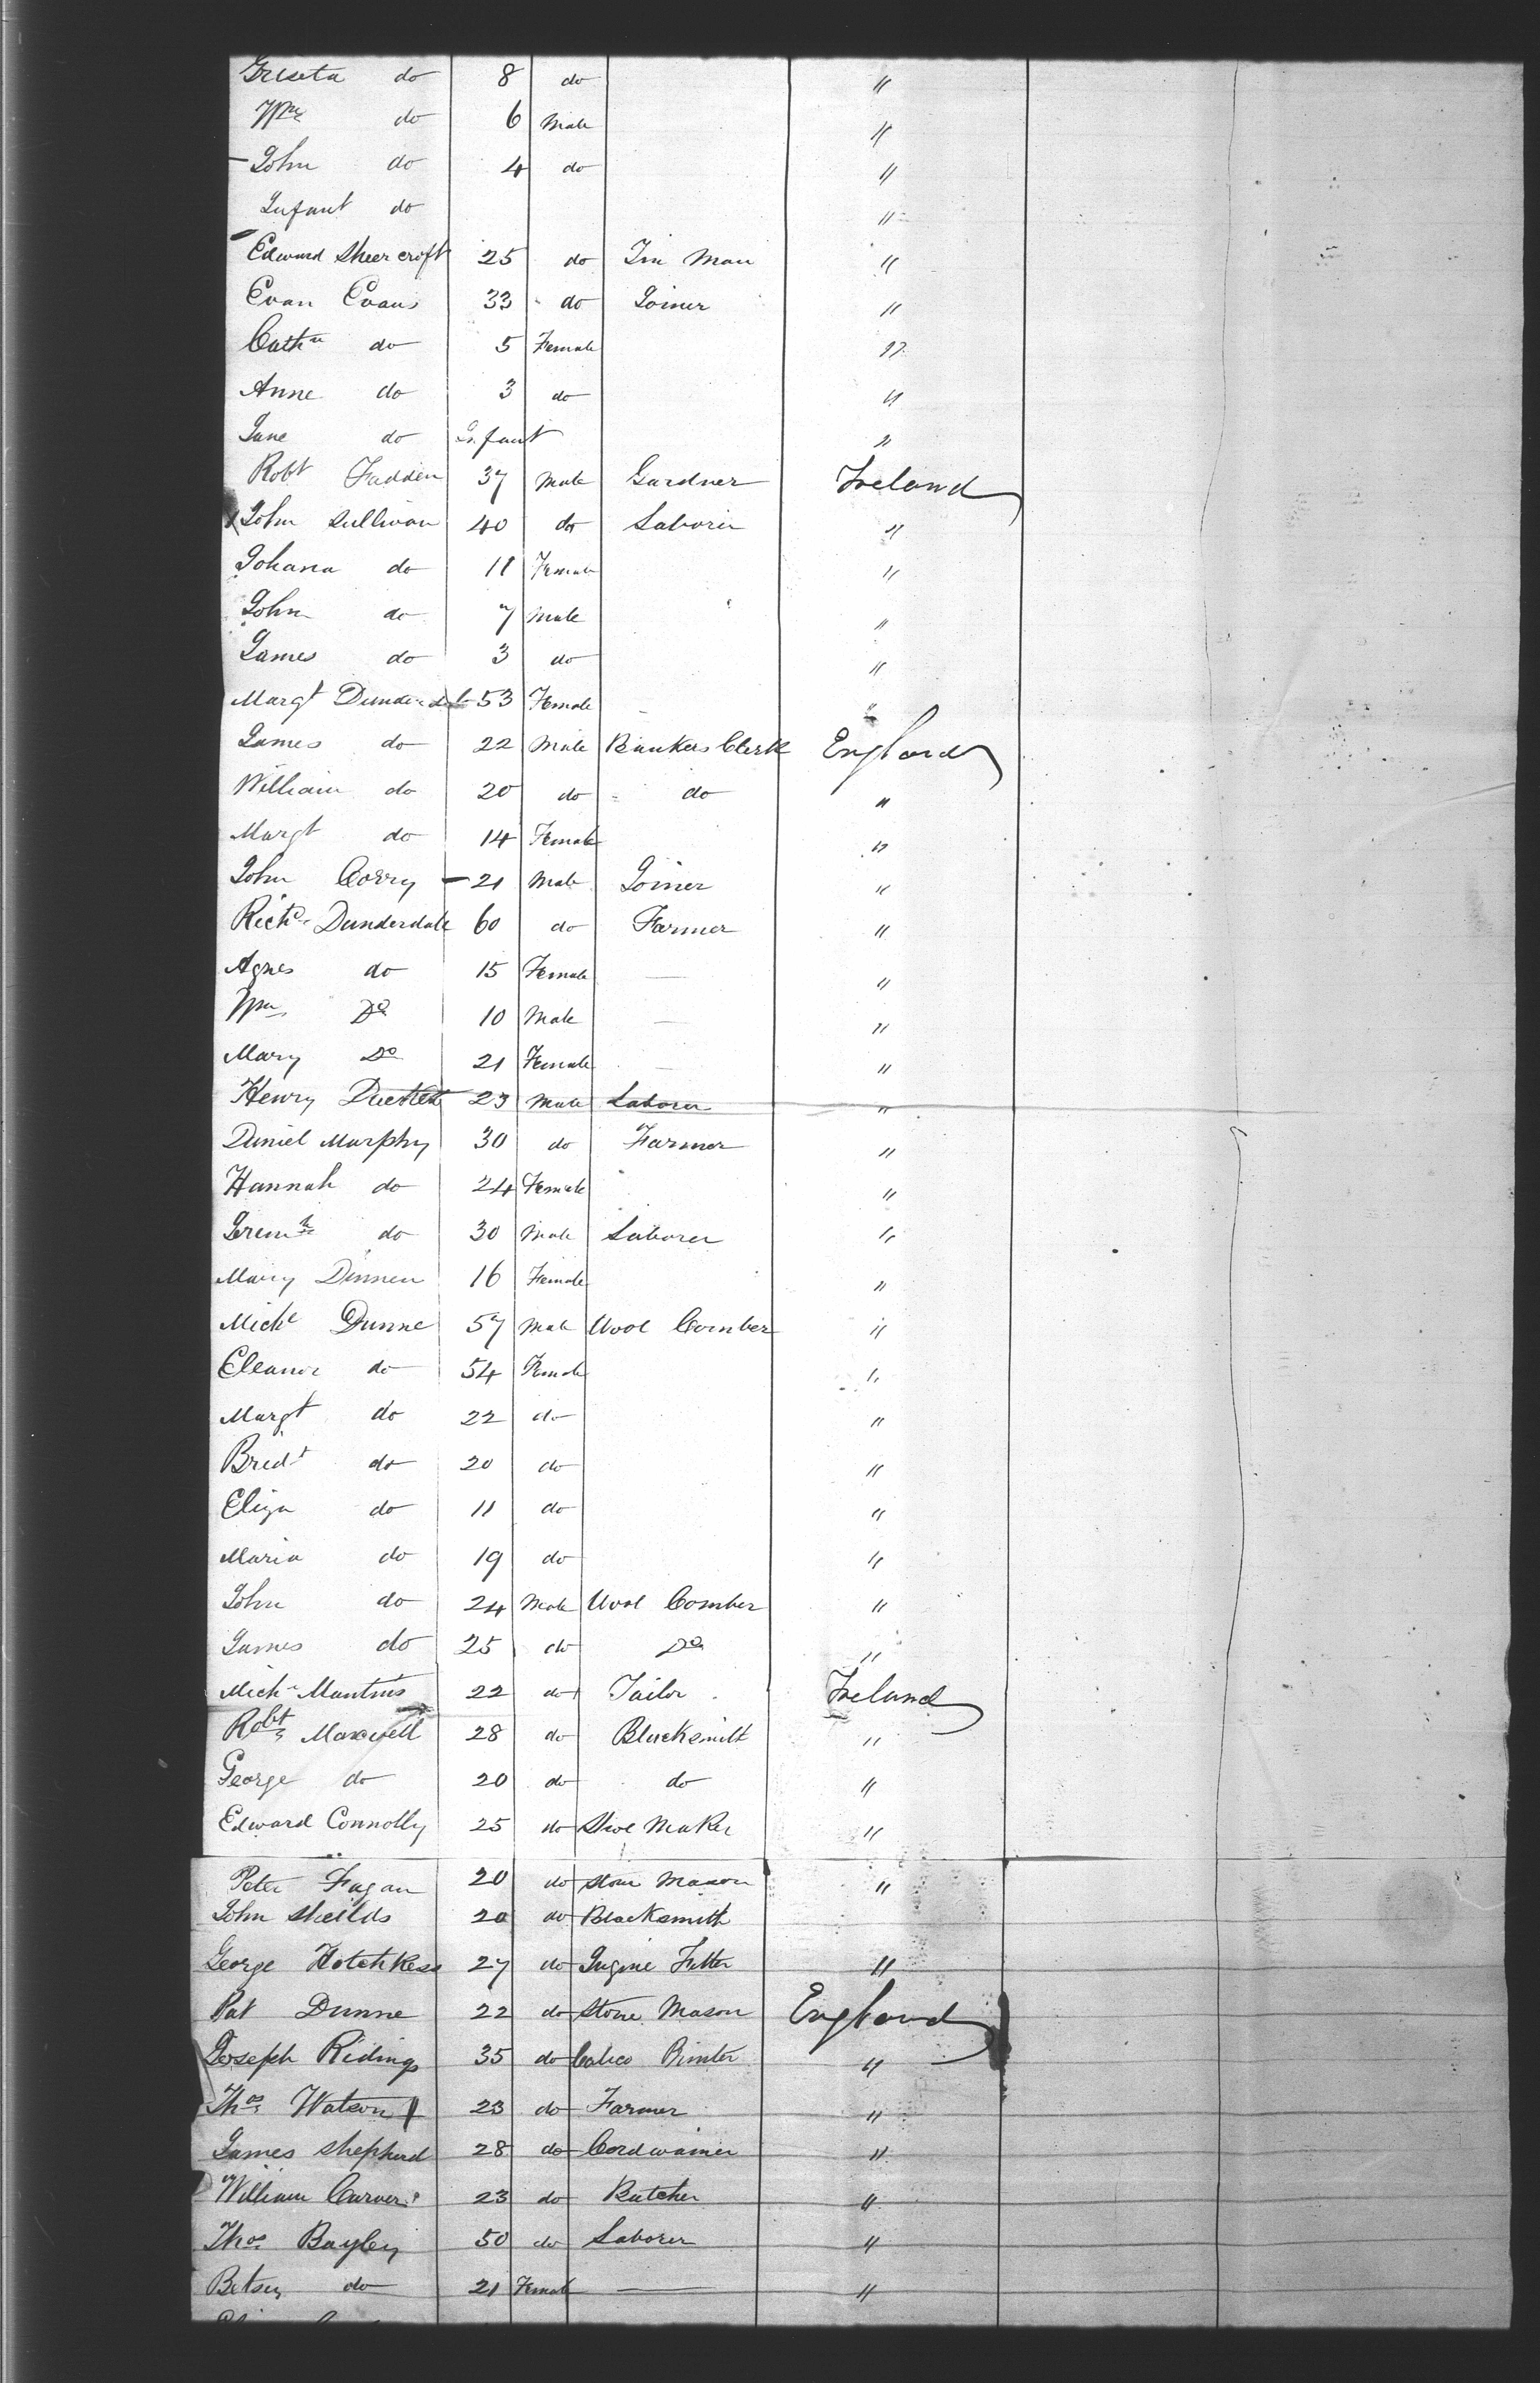 Griseta do 8 do "
Wm do 6 Male "
John do 4 do "
Infant do "
Edward Sheercroft 25 do Tin Man "
Evan Evans 33 do Joiner "
Cathn do 5 Female "
Anne do 3 do "
Jane do Infant "
Robt Fadden 37 Male Gardner Ireland
John Sullivan 40 do Laborer "
Johana do 11 Female "
John do 7 Male "
James do 3 do "
Margt 53 Female "
James do 22 Male Bankers Clerk England
William do 20 do do "
Margt do 14 Female "
John Corry 21 Male Joiner "
Richd Dunderdale 60 do Farmer "
Agnes do 15 Female — "
Wm Do 10 Male — "
Mary Do 21 Female — "
Henry Duckett 23 Male Laborer "
Daniel Murphy 30 do Farmer "
Hannah do 24 Female "
Jeremh do 30 Male Laborer "
Mary Dinnen 16 Female "
Michl Dunne 57 Male Wool Comber "
Eleanor do 54 Female "
Margt do 22 do "
Bridt do 20 do "
Eliza do 11 do "
Maria do 19 do "
John do 24 Male Wool Comber "
James do 25 do Do "
Michl 22 do Tailor Ireland
Robt Maxwell 28 do Blacksmith "
George do 20 do do "
Edward Connolly 25 do Shoe Maker "
Peter Fagan 20 do Stone Mason "
John Sheilds 20 do Blacksmith
George Hotchkess 27 do Engine Fitter "
Pat Dunne 22 do Stone Mason England
Joseph Ridings 35 do Calico Printer "
Thos Watson 23 do Farmer "
James Shepherd 28 do Cordwainer "
William Carver 23 do Butcher "
Thos Bayley 50 do Laborer "
Betsey do 21 Female — "